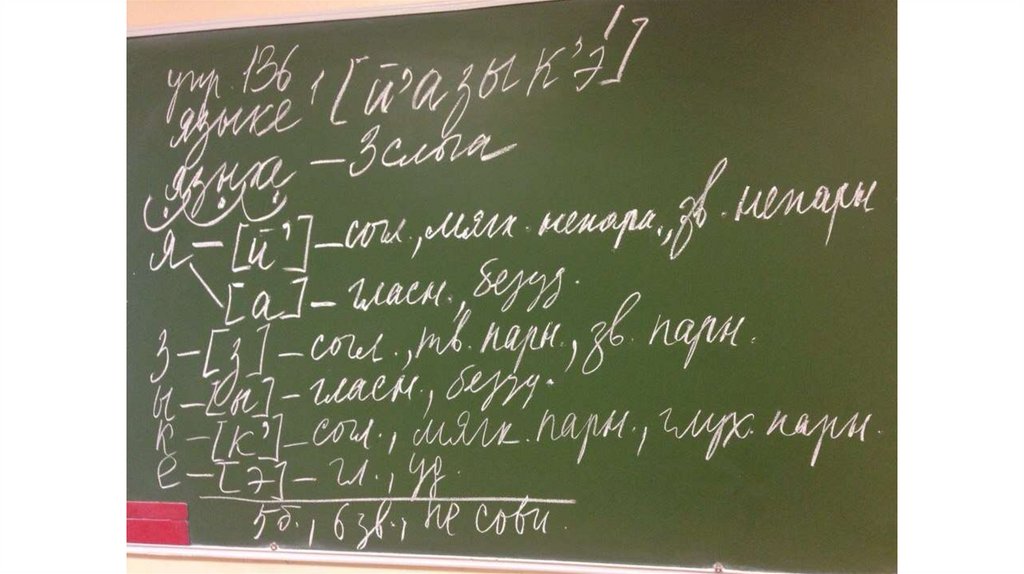 упр. 136
языке, [й'азык'э́]
языке – 3 слога
я – [й'] – согл., мягк. непарн., зв. непарн
[а] – гласн., безуд.
з – [з] – согл., тв. парн., зв. парн.
ы – [ы] – гласн., безуд.
к – [к'] – согл., мягк. парн., глух. парн.
е – [э] – гл., уд.
5 б., 6 зв., не совп.